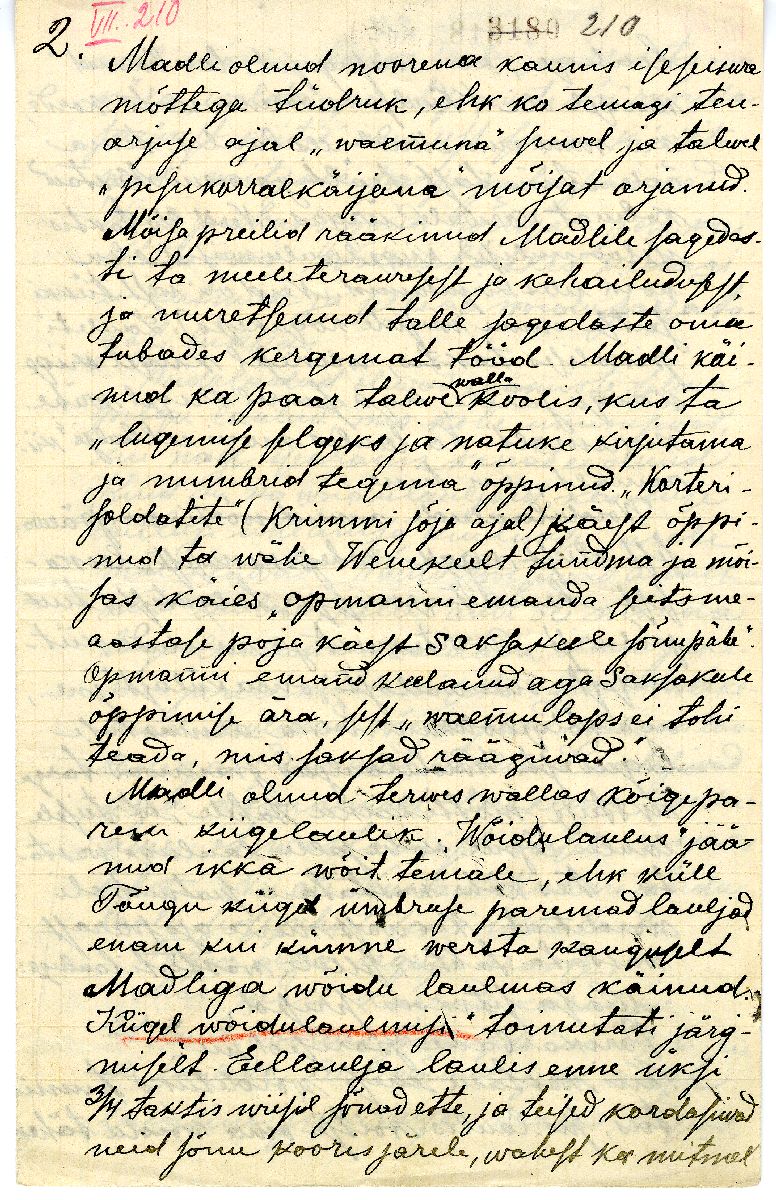 2. VII. 210 3180 210
Madli olnud noorena kaunis iseseiswa
mõttega tüdruk, ehk ko temagi teu-
orjuse ajal „waeműna" suwel ja talwel
„pesukorralkäijana" mõisat orjanud.
Mõisa preilid rääkinud Madlile sagedas-
ti ta meeleterawusest ja kehailudusest,
ja muretsenud talle sagedaste oma
tubades kergemat tööd. Madli käi-
nud ka paar talwe walla koolis, kus ta
„lugemise selgeks ja natuke kirjutama
ja numbrid tegema" õppinud. „Korteri-
soldatite" (Krimmi sõja ajal) käest õppi-
nud ta wähe Wenekeelt tundma ja mõi-
sas käies „opmanni emanda seitsme-
aastase poja käest Saksakeele sõnupähe".
Opmanni emand keelanud aga Saksakeele
õppimise ära, sest „waemu laps ei tohi
teada, mis saksad räägiwad."
Madli olnud terwes wallas kõigepa-
rem kiigelaulik. „Wõidulaulus" jää-
nud ikka wõit temale, ehk küll
Tõugu kiigel ümbruse paremad lauljad
enam kui kümne wersta kauguselt
Madliga wõidu laulmas käinud.
„Kiigel wõidulaulmisi" toimutati järg-
miselt. Eellaulja laulis enne üksi
3/4 taktis wiisil sõnad ette, ja teised kordasiwad
neid sõnu kooris järele, wahest ka mitmel